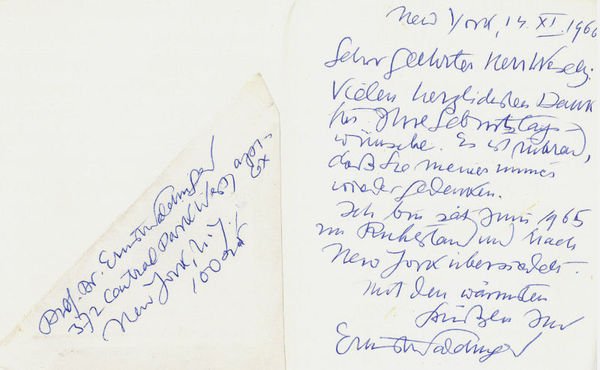 Prof. Dr. Ernst Waldinger
372 Central Park West, apt.
New York, N.Y.
New York, 14. XI. 1966
Sehr geehrter Herr
Vielen herzlichsten Dank
für Ihre Geburtstags-
wünsche. Es ist rührend,
daß Sie meiner immer
wieder gedenken.
Ich bin seit Juni 1965
im Ruhestand und nach
New York übersiedelt.
Mit den wärmsten
Grüßen Ihr
Ernst Waldinger